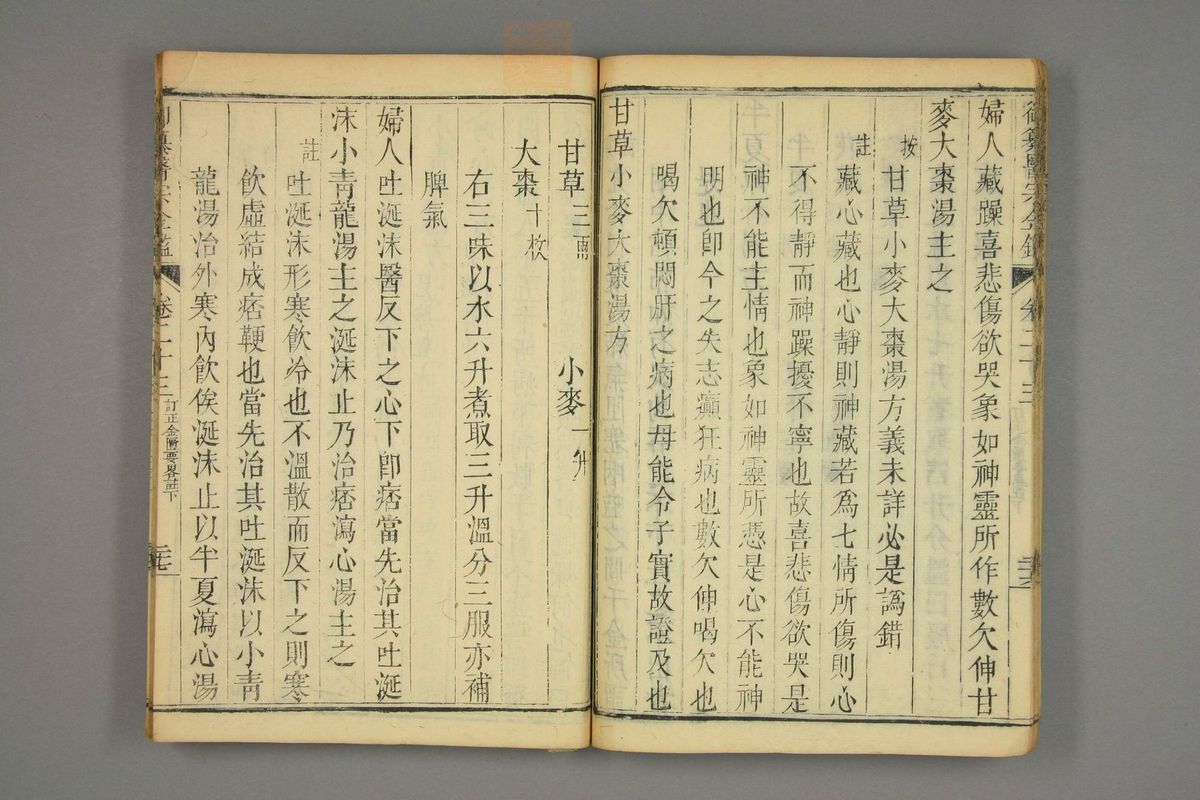 御纂醫宗金鑑 卷二十三
婦人藏躁喜悲傷欲哭象如神靈所作數欠伸甘
麥大棗湯主之
按甘草小麥大棗湯方義未詳必是譌錯
註藏心藏也心靜則神藏若爲七情所傷則心
不得靜而神躁擾不寧也故喜悲傷欲哭是
神不能主情也象如神靈所憑是心不能神
明也卽今之失志癲狂病也數欠伸喝欠也
喝欠頓悶肝之病也母能令子實故證及也
甘草小麥大棗湯方
甘草三兩 小麥一升
大棗十枚
右三味以水六升煮取三升溫分三服亦補
脾氣
婦人吐涎沫醫反下之心下卽痞當先治其吐涎
沫小青龍湯主之涎沫止乃治痞瀉心湯主之
註吐涎沫形寒飲冷也不溫散而反下之則寒
飲虛結成痞鞕也當先治其吐涎沫以小青
龍湯治外寒內飲俟涎沫止以半夏瀉心湯
御纂醫宗金鑑 卷二十三 訂正金匱要畧註下